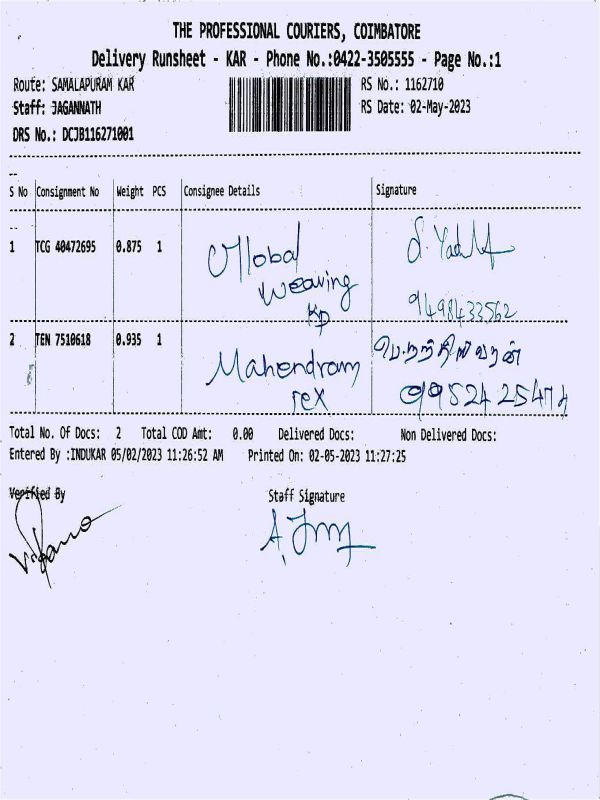 THE PROFESSIONAL COURIERS, COIMBATORE
Delivery Runsheet - KAR - Phone No.:0422-3505555 - Page No.:1
Route: SAMALAPURAM KAR RS No.: 1162710
Staff: JAGANNATH RS Date: 02-May-2023
DRS No.: DCJB116271001
S No Consignment No Weight PCS Consignee Details Signature
1 TCG 40472695 0.875 1 Global S. Yad
Weaving
KP 9498433562
2 TEN 7510618 0.935 1 Mahendram
Tex 9952425474
Total No. Of Docs: 2 Total COD Amt: 0.00 Delivered Docs: Non Delivered Docs:
Entered By :INDUKAR 05/02/2023 11:26:52 AM Printed On: 02-05-2023 11:27:25
Verified By Staff Signature